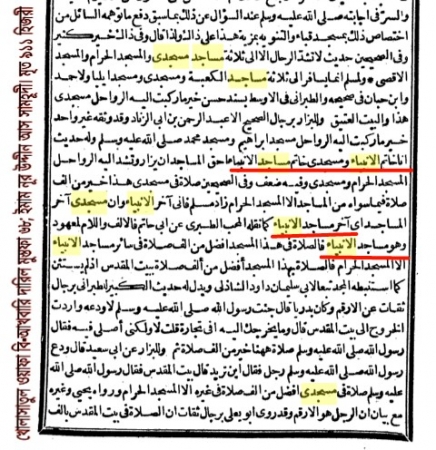 খোলাসাতুল ওয়াফা বি-আখবারি দারিল মুস্তফা ৬৮, ইমাম নূর উদ্দীন আস সামহুদী। মৃত ৯১১ হিজরী
والسر في اجابته صلى الله عليه وسلم عند السؤال عن ذلك بما سبق دفع ما توهمه السائل من
اختصاص ذلك بمسجد قباء والتنويه بمزية هذا على ذاك ولذا قال وفي ذلك خير كثير
وفي الصحيحين حديث لا تشد الرحال الا الى ثلاثة مساجد مسجدي والمسجد الحرام والمسجد
الاقصى ولمسلم انما يسافر الى ثلاثة مساجد الكعبة ومسجدي ومسجد ايليا ولاحد
وابن حبان في صحيحه والطبراني في الاوسط بسند حسن خير ما ركبت اليه الرواحل مسجدي
هذا والبيت العتيق وللبزار برجال الصحيح الا عبد الرحمن بن ابي الزناد وقد وثقه غير واحد
خير ما ركبت اليه الرواحل مسجد ابراهيم ومسجد محمد صلى الله عليه وسلم وله حديث
انا خاتم الانبياء ومسجدي خاتم مساجد الانبياء احق المساجد ان يزار وتشد اليه الرواحل
المسجد الحرام ومسجدي وفيه ضعف وفي الصحيحين صلاة في مسجدي هذا خير من الف
صلاة فيما سواه من المساجد الا المسجد الحرام زاد مسلم فاني آخر الانبياء وان مسجدي آخر
المساجد اي آخر مساجد الانبياء كما نقله المحب الطبري عن ابي حاتم فالالف واللام لمعهود
وهو مساجد الانبياء فالصلاة في هذا المسجد افضل من الف صلاة في سائر مساجد الانبياء
الا المسجد الحرام فالصلاة بهذا المسجد أفضل من ألف صلاة ببيت المقدس اذ لم يستثن
كما استنبطه المجد تعالى ابي سليمان داود الشاذلي ويدل له حديث الكبير للطبراني برجال
ثقات عن الارقم وكان بدريا قال جئت رسول الله صلى الله عليه وسلم لاودعه واردت
الخروج الى بيت المقدس قال وما يخرجك اليه أفي تجارة قلت لا ولكني أصلي فيه فقال
رسول الله صلى الله عليه وسلم صلاة ههنا خير من الف صلاة ثم وللبزار عن ابي سعيد قال ودع
رسول الله صلى الله عليه وسلم رجل فقال أين تريد قال أريد بيت المقدس فقال رسول الله صلى الله
عليه وسلم صلاة في مسجدي افضل من الف صلاة في غيره الا المسجد الحرام ورواه يحيى وغيره
مع بيان ان الرجل هو الارقم وقد روى ابو يعلى برجال ثقات ان الصلاة في بيت المقدس بالف